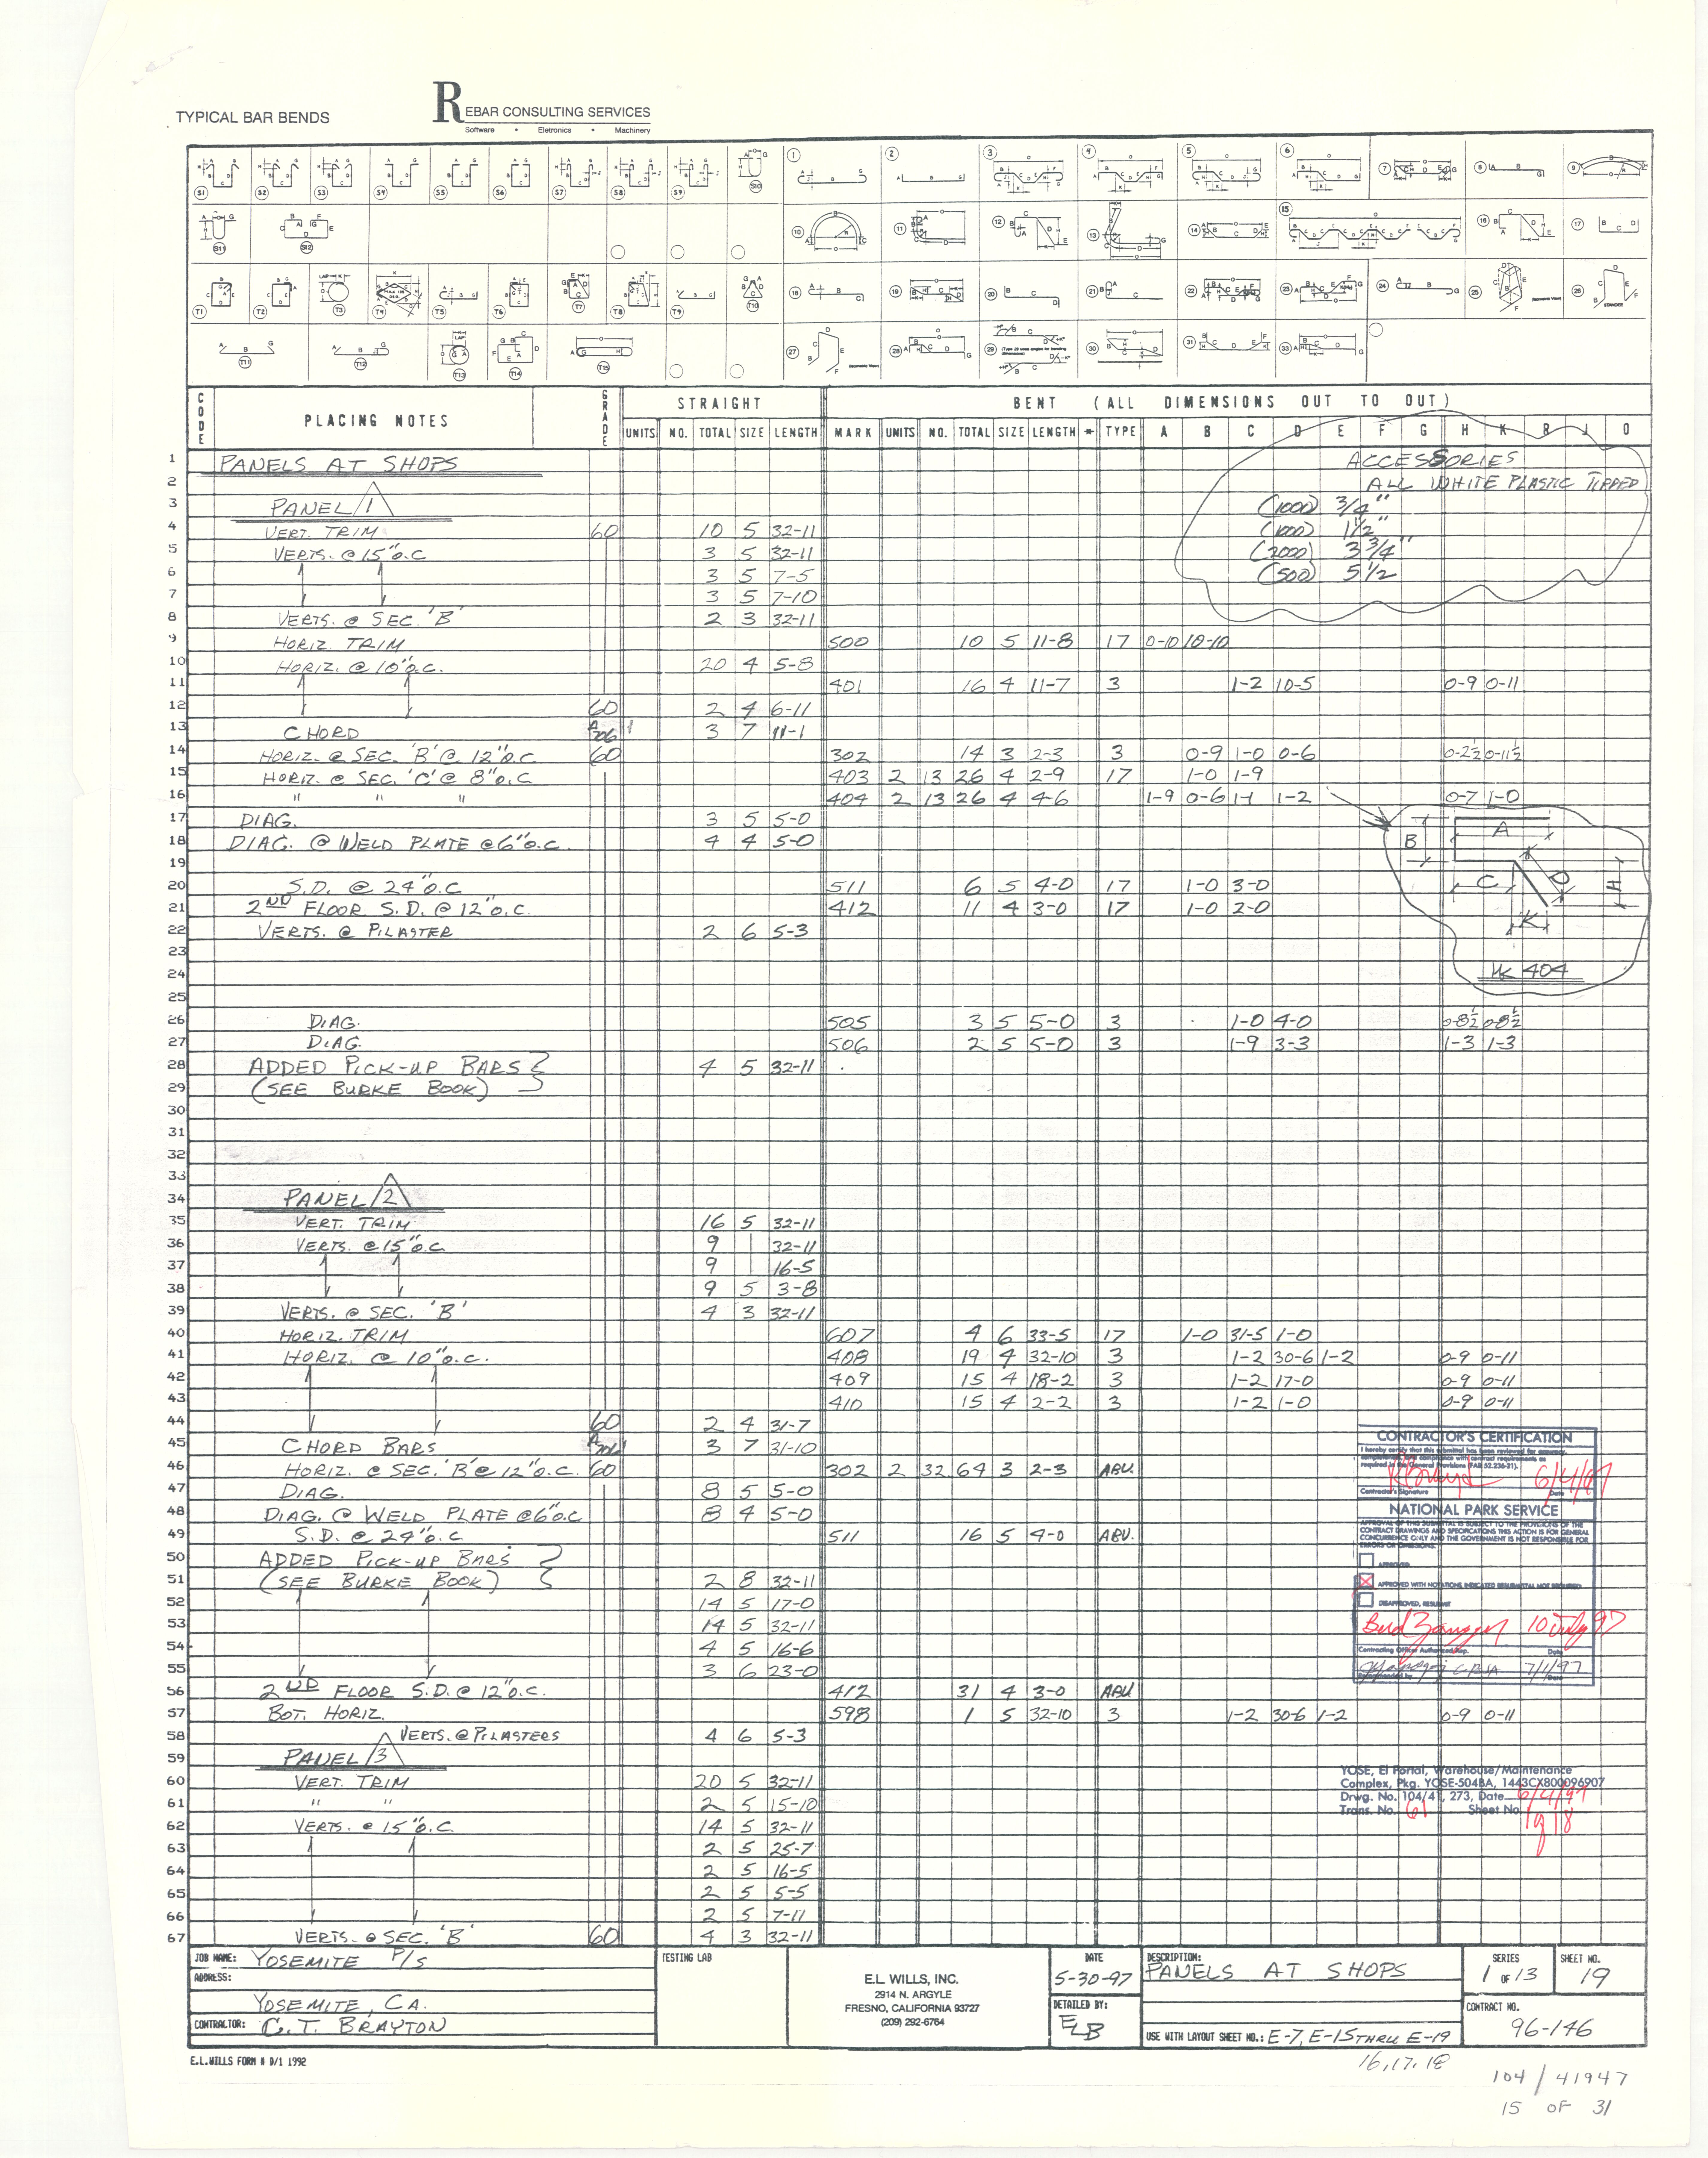 TYPICAL BAR BENDS
REBAR CONSULTING SERVICES
Software • Eletronics • Machinery
CODE PLACING NOTES GRADE STRAIGHT BENT (ALL DIMENSIONS OUT TO OUT)
UNITS NO. TOTAL SIZE LENGTH MARK UNITS NO. TOTAL SIZE LENGTH * TYPE A B C D E F G H K R J O
1 PANELS AT SHOPS ACCESSORIES
2 ALL WHITE PLASTIC TIPPED
3 PANEL 1 (1000) 3/4"
4 VERT. TRIM 60 10 5 32-11 (1000) 1 1/2"
5 VERTS. @ 15" O.C 3 5 32-11 (2000) 3 3/4"
6 3 5 7-5 (500) 5 1/2
7 3 5 7-10
8 VERTS. @ SEC. 'B' 2 3 32-11
9 HORIZ. TRIM 500 10 5 11-8 17 0-10 10-10
10 HORIZ. @ 10" O.C. 20 4 5-8
11 401 16 4 11-7 3 1-2 10-5 0-9 0-11
12 60 2 4 6-11
13 CHORD A706 3 7 11-1
14 HORIZ. @ SEC. 'B' @ 12" O.C 60 302 14 3 2-3 3 0-9 1-0 0-6 0-2½ 0-11½
15 HORIZ. @ SEC. 'C' @ 8" O.C 403 2 13 26 4 2-9 17 1-0 1-9
16 " " " 404 2 13 26 4 4-6 1-9 0-6 1-1 1-2 0-7 1-0
17 DIAG. 3 5 5-0
18 DIAG. @ WELD PLATE @ 6" O.C. 4 4 5-0
A B C D H K
19
20 S.D. @ 24" O.C 511 6 5 4-0 17 1-0 3-0
21 2ND FLOOR S.D. @ 12" O.C. 412 11 4 3-0 17 1-0 2-0
22 VERTS. @ PILASTER 2 6 5-3
23
24 MK 404
25
26 DIAG. 505 3 5 5-0 3 1-0 4-0 0-8½ 0-8½
27 DIAG. 506 2 5 5-0 3 1-9 3-3 1-3 1-3
28 ADDED PICK-UP BARS 4 5 32-11
29 (SEE BURKE BOOK)
30
31
32
33
34 PANEL 2
35 VERT. TRIM 16 5 32-11
36 VERTS. @ 15" O.C 9 32-11
37 9 16-5
38 9 5 3-8
39 VERTS. @ SEC. 'B' 4 3 32-11
40 HORIZ. TRIM 607 4 6 33-5 17 1-0 31-5 1-0
41 HORIZ. @ 10" O.C. 408 19 4 32-10 3 1-2 30-6 1-2 0-9 0-11
42 409 15 4 18-2 3 1-2 17-0 0-9 0-11
43 410 15 4 2-2 3 1-2 1-0 0-9 0-11
44 60 2 4 31-7
45 CHORD BARS A706 3 7 31-10
46 HORIZ. @ SEC. 'B' @ 12" O.C. 60 302 2 32 64 3 2-3 ABV.
47 DIAG. 8 5 5-0
48 DIAG. @ WELD PLATE @ 6" O.C 8 4 5-0
49 S.D. @ 24" O.C 511 16 5 4-0 ABV.
50 ADDED PICK-UP BARS
51 (SEE BURKE BOOK) 2 8 32-11
52 14 5 17-0
53 14 5 32-11
54 4 5 16-6
55 3 6 23-0
56 2ND FLOOR S.D. @ 12" O.C. 412 31 4 3-0 ABV
57 BOT. HORIZ. 598 1 5 32-10 3 1-2 30-6 1-2 0-9 0-11
58 VERTS. @ PILASTERS 4 6 5-3
59 PANEL 3
60 VERT. TRIM 20 5 32-11
61 " " 2 5 15-10
62 VERTS. @ 15" O.C. 14 5 32-11
63 2 5 25-7
64 2 5 16-5
65 2 5 5-5
66 2 5 7-11
67 VERTS. @ SEC. 'B' 60 4 3 32-11
CONTRACTOR'S CERTIFICATION
I hereby certify that this submittal has been reviewed for accuracy,
completeness, and compliance with contract requirements as
required in the General Provisions (FAR 52.236-21).
6/4/97
Contractor's Signature Date
NATIONAL PARK SERVICE
APPROVAL OF THIS SUBMITTAL IS SUBJECT TO THE PROVISIONS OF THE
CONTRACT DRAWINGS AND SPECIFICATIONS THIS ACTION IS FOR GENERAL
CONCURRENCE ONLY AND THE GOVERNMENT IS NOT RESPONSIBLE FOR
ERRORS OR OMISSIONS.
APPROVED
APPROVED WITH NOTATIONS INDICATED RESUBMITTAL NOT REQUIRED
DISAPPROVED, RESUBMIT
10 July 97
Contracting Officer Authorized Rep. Date
7/1/97
YOSE, El Portal, Warehouse/Maintenance
Complex, Pkg. YOSE-504BA, 1443CX800096907
Drwg. No. 104/41, 273, Date 6/4/97
Trans. No. 61 Sheet No. 1 of 18
JOB NAME: YOSEMITE P/S
ADDRESS:
YOSEMITE, CA.
CONTRACTOR: C.T. BRAYTON
TESTING LAB
E.L. WILLS, INC.
2914 N. ARGYLE
FRESNO, CALIFORNIA 93727
(209) 292-6764
DATE
5-30-97
DETAILED BY:
ELB
DESCRIPTION:
PANELS AT SHOPS
USE WITH LAYOUT SHEET NO.: E-7, E-15 THRU E-19
16, 17, 18
SERIES
1 OF 13
SHEET NO.
19
CONTRACT NO.
96-146
E.L.WILLS FORM # D/1 1992
104/41947
15 OF 31